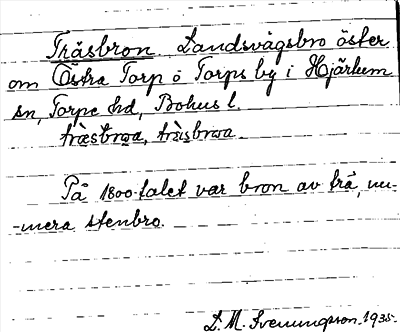 Träsbron. Landsvägsbro öster
om Östra Torp o Torps by i Hjärtum
sn, Torpe hd, Bohus l.
træ̀sbrωa, trὰsbrωa.
På 1800-talet var bron av trä, nu-
-mera stenbro.
D. M. Svenungsson. 1935.